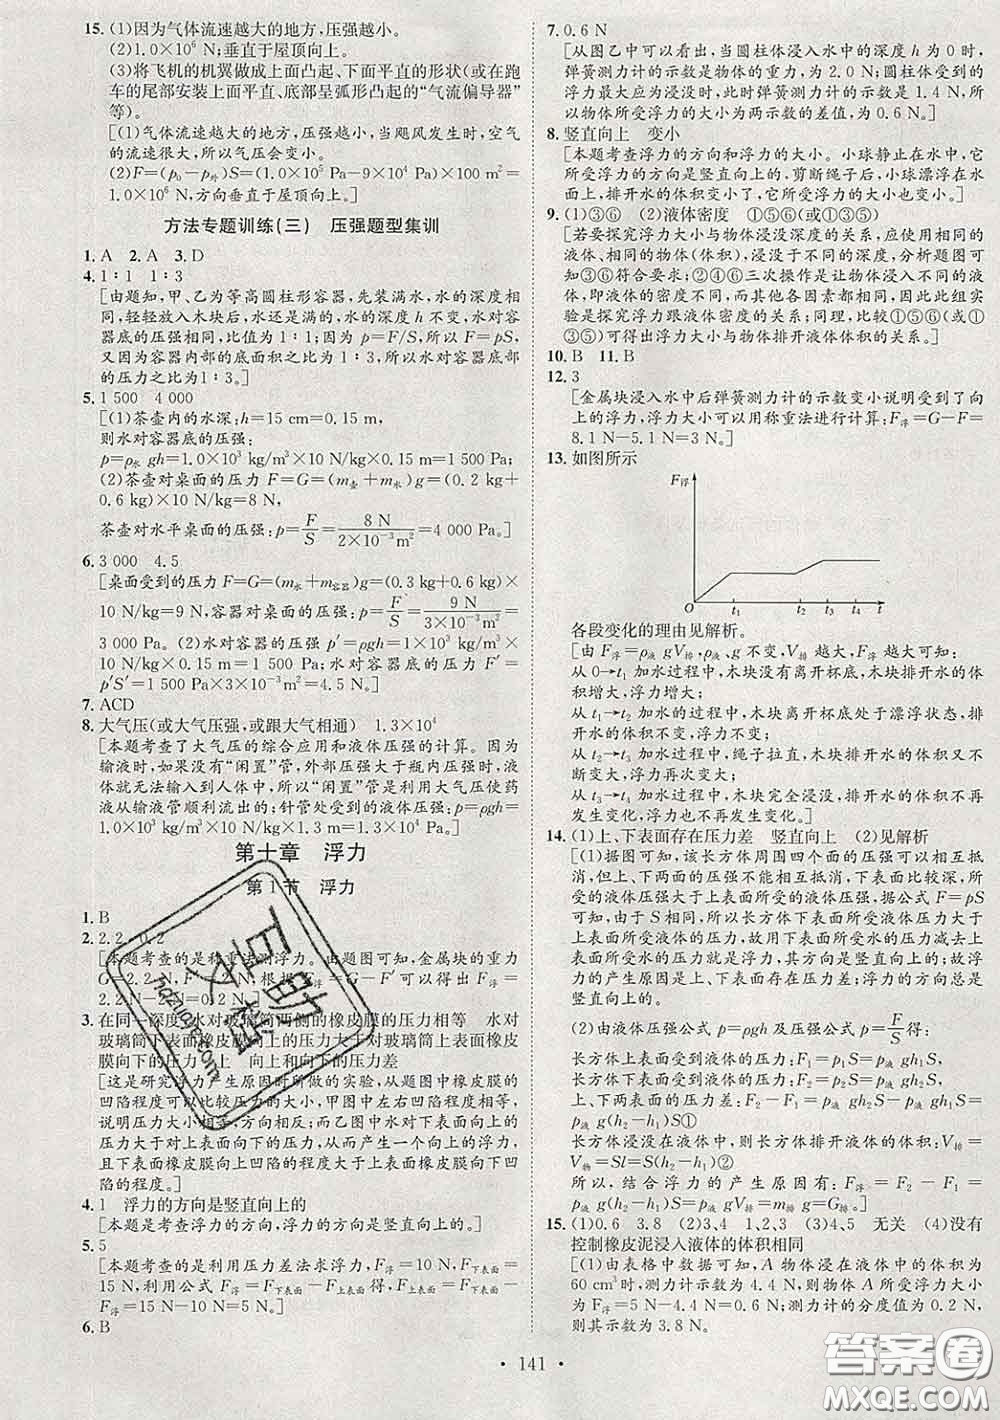 15.(1)因为气体流速越大的地方,压强越小。
(2)1.0×10⁶ N;垂直于屋顶向上。
(3)将飞机的机翼做成上面凸起、下面平直的形状(或在跑
车的尾部安装上面平直、底部呈弧形凸起的“气流偏导器”
等)。
[(1)气体流速越大的地方,压强越小,当飓风发生时,空气
的流速很大,所以气压会变小。
(2)F=(p₀-p外)S=(1.0×10⁵ Pa-9×10⁴ Pa)×100 m²=
1.0×10⁶ N,方向垂直于屋顶向上。]
方法专题训练(三) 压强题型集训
1.A 2.A 3.D
4.1∶1 1∶3
[由题知,甲、乙为等高圆柱形容器,先装满水,水的深度相
同,轻轻放入木块后,水还是满的,水的深度 h 不变,水对容
器底的压强相同,比值为1∶1;因为 p=F/S,所以 F=pS,
又因为容器内部的底面积之比为1∶3,所以水对容器底部
的压力之比为1∶3。]
5.1 500 4 000
[(1)茶壶内的水深:h=15 cm=0.15 m,
则水对容器底的压强:
p=ρ水 gh=1.0×10³ kg/m³×10 N/kg×0.15 m=1 500 Pa。
(2)茶壶对桌面的压力 F=G=(m壶+m水)g=(0.2 kg+
0.6 kg)×10 N/kg=8 N,
茶壶对水平桌面的压强:p=F/S=8 N/2×10⁻³m²=4 000 Pa。]
6.3 000 4.5
[桌面受到的压力 F=G=(m水+m容器)g=(0.3 kg+0.6 kg)×
10 N/kg=9 N,容器对桌面的压强:p=F/S=9 N/3×10⁻³m²=
3 000 Pa。(2)水对容器的压强 p′=ρgh=1×10³ kg/m³×
10 N/kg×0.15 m=1 500 Pa,水对容器底的压力 F′=
p′S′=1 500 Pa×3×10⁻³ m²=4.5 N。]
7.ACD
8.大气压(或大气压强,或跟大气相通) 1.3×10⁴
[本题考查了大气压的综合应用和液体压强的计算。因为
输液时,如果没有“闲置”管,外部压强大于瓶内压强时,液
体就无法输入到人体中,所以“闲置”管是利用大气压使药
液从输液管顺利流出的;针管处受到的液体压强:p=ρgh=
1.0×10³ kg/m³×10 N/kg×1.3 m=1.3×10⁴ Pa。]
第十章 浮力
第1节 浮力
1.B
2.2.2 0.2
[本题考查的是称重法测浮力。由题图可知,金属块的重力
G=2.2 N,根据 F浮=G-F′可以得出 F浮=
2.2 N-2 N=0.2 N。]
3.在同一深度,水对玻璃筒两侧的橡皮膜的压力相等 水对
玻璃筒下表面橡皮膜向上的压力大于对玻璃筒上表面橡皮
膜向下的压力 上 向上和向下的压力差
[这是研究浮力产生原因时所做的实验,从题图中橡皮膜的
凹陷程度可以比较压力的大小,图甲中左右凹陷程度相同,
说明压力大小相等、方向相反;而乙图中水对下表面向上的
压力大于对上表面向下的压力,从而产生一个向上的浮力,
且下表面橡皮膜向上凹陷的程度大于上表面橡皮膜向下凹
陷的程度。]
4.1 浮力的方向是竖直向上的
[本题是考查浮力的方向,浮力的方向是竖直向上的。]
5.5
[本题考查的是利用压力差法求浮力,F浮=10 N,F下表面=
15 N,利用公式 F浮=F下表面-F上表面得,F上表面=F下表面
-F浮=15 N-10 N=5 N。]
6.B
7.0.6 N
[从图乙中可以看出,当圆柱体浸入水中的深度 h 为0时,
弹簧测力计的示数是物体的重力,为 2.0 N;圆柱体受到的
浮力最大应为浸没时,此时弹簧测力计的示数是 1.4 N,所
以物体所受浮力的大小为两示数的差值,为 0.6 N。]
8.竖直向上 变小
[本题考查浮力的方向和浮力的大小。小球静止在水中,它
所受浮力的方向是竖直向上的。剪断绳子后,小球漂浮在水
面上,排开水的体积变小了,它所受浮力的大小也变小。]
9.(1)③⑥ (2)液体密度 ①⑤⑥(或①③⑤)
[若要探究浮力大小与物体浸没深度的关系,应使用相同的
液体、相同的物体(体积),浸没于不同的深度,分析题图可
知③⑥符合要求;②④⑥三次操作是让物体浸入不同的液
体,即液体的密度不同,而其他各因素都相同,因此此组实
验是探究浮力跟液体密度的关系;同理,比较①⑤⑥(或①
③⑤)可得出浮力大小与物体排开液体体积的关系。]
10.B 11.B
12.3
[金属块浸入水中后弹簧测力计的示数变小说明受到了向
上的浮力,浮力大小可以用称重法进行计算:F浮=G-F=
8.1 N-5.1 N=3 N。]
13.如图所示
F浮
O t₁ t₂ t₃ t₄ t
各段变化的理由见解析。
[由 F浮=ρ液 gV排,ρ液、g 不变,V排 越大,F浮 越大可知:
从 0→t₁ 加水过程中,木块没有离开杯底,木块浸入水的体
积增大,浮力增大;
从 t₁→t₂ 加水的过程中,木块离开杯底处于漂浮状态,排开
水的体积不变,浮力不变;
从 t₂→t₃ 加水过程中,绳子拉直,木块排开水的体积又不
断变大,浮力再次变大;
从 t₃→t₄ 加水过程中,木块完全浸没,排开水的体积不再
发生变化,浮力也不再发生变化。]
14.(1)上、下表面存在压力差 竖直向上 (2)见解析
[(1)据图可知,该长方体周围四个面的压强可以相互抵
消,但上、下两面的压强不能相互抵消。下表面比较深,所
受的液体压强大于上表面所受的液体压强,根据公式 F=pS
可知,由于 S 相同,所以浸没在水中的长方体下表面受到的
上表面所受液体的压力,故用下表面所受水的压力减去上
表面受水的压力就是浮力,其方向是竖直向上的,故浮
力的产生原因是上、下表面存在压力差;浮力的方向总是
竖直向上的。
(2)由液体压强公式 p=ρgh 及压强公式 p=F/S得:
长方体上表面受到液体的压力:F₁=p₁S=ρ液 gh₁S;
长方体下表面受到液体的压力:F₂=p₂S=ρ液 gh₂S;
上、下两表面受到液体的压力差:F₂-F₁=ρ液 gh₂S-
ρ液 gh₁S=ρ液 g(h₂-h₁)S①
长方体浸没在液体中,则长方体排开液体的体积:V排
=V物=Sl=S(h₂-h₁)②
所以,结合浮力的产生原因有:F浮=F₂-F₁=
ρ液 g(h₂-h₁)S=ρ液 gV排=m排 g=G排。]
15.(1)0.6 3.8 (2)3、4 1、2、3 (3)4、5 无关 (4)没有
控制橡皮泥浸入液体的体积相同
[(1)由表格中数据可知,A 物体浸入液体中的体积为
60 cm³时,测力计示数为 4.4 N,则物体 A 所受浮力大小
为 F浮=5 N-4.4 N=0.6 N;测力计的分度值为 0.2 N,
则其示数为 3.8 N。
· 141 ·
答案圈
MXQE.COM